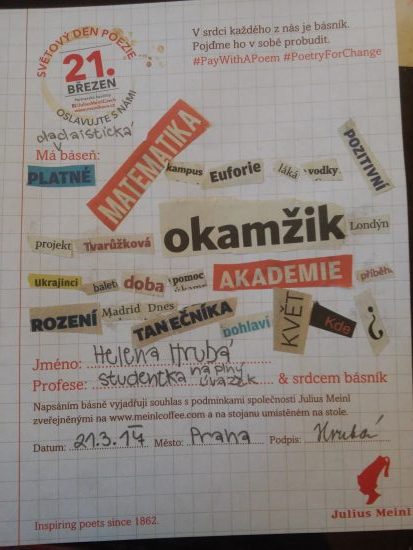 SVĚTOVÝ DEN POEZIE
21.
BŘEZEN
OSLAVUJTE S NÁMI
V srdci každého z nás je básník.
Pojďme ho v sobě probudit.
#PayWithAPoem #PoetryForChange
dadaistická
Má báseň:
PLATNÉ MATEMATIKA kampus Euforie láká vodky POZITIVNÍ
projekt Tvarůžková okamžik Londýn
Ukrajinci balet doba pomoc AKADEMIE příběh
ROZENÍ Madrid Dnes TANEČNÍKA pohlaví KVĚT Kde ?
Jméno: Helena Hrubá
Profese: studentka na plný úvazek & srdcem básník
Napsáním básně vyjadřuji souhlas s podmínkami společnosti Julius Meinl
zveřejněnými na www.meinlcoffee.com a na stojanu umístěném na stole.
Datum: 21.3.17 Město: Praha Podpis: Hrubá
Julius Meinl
Inspiring poets since 1862.